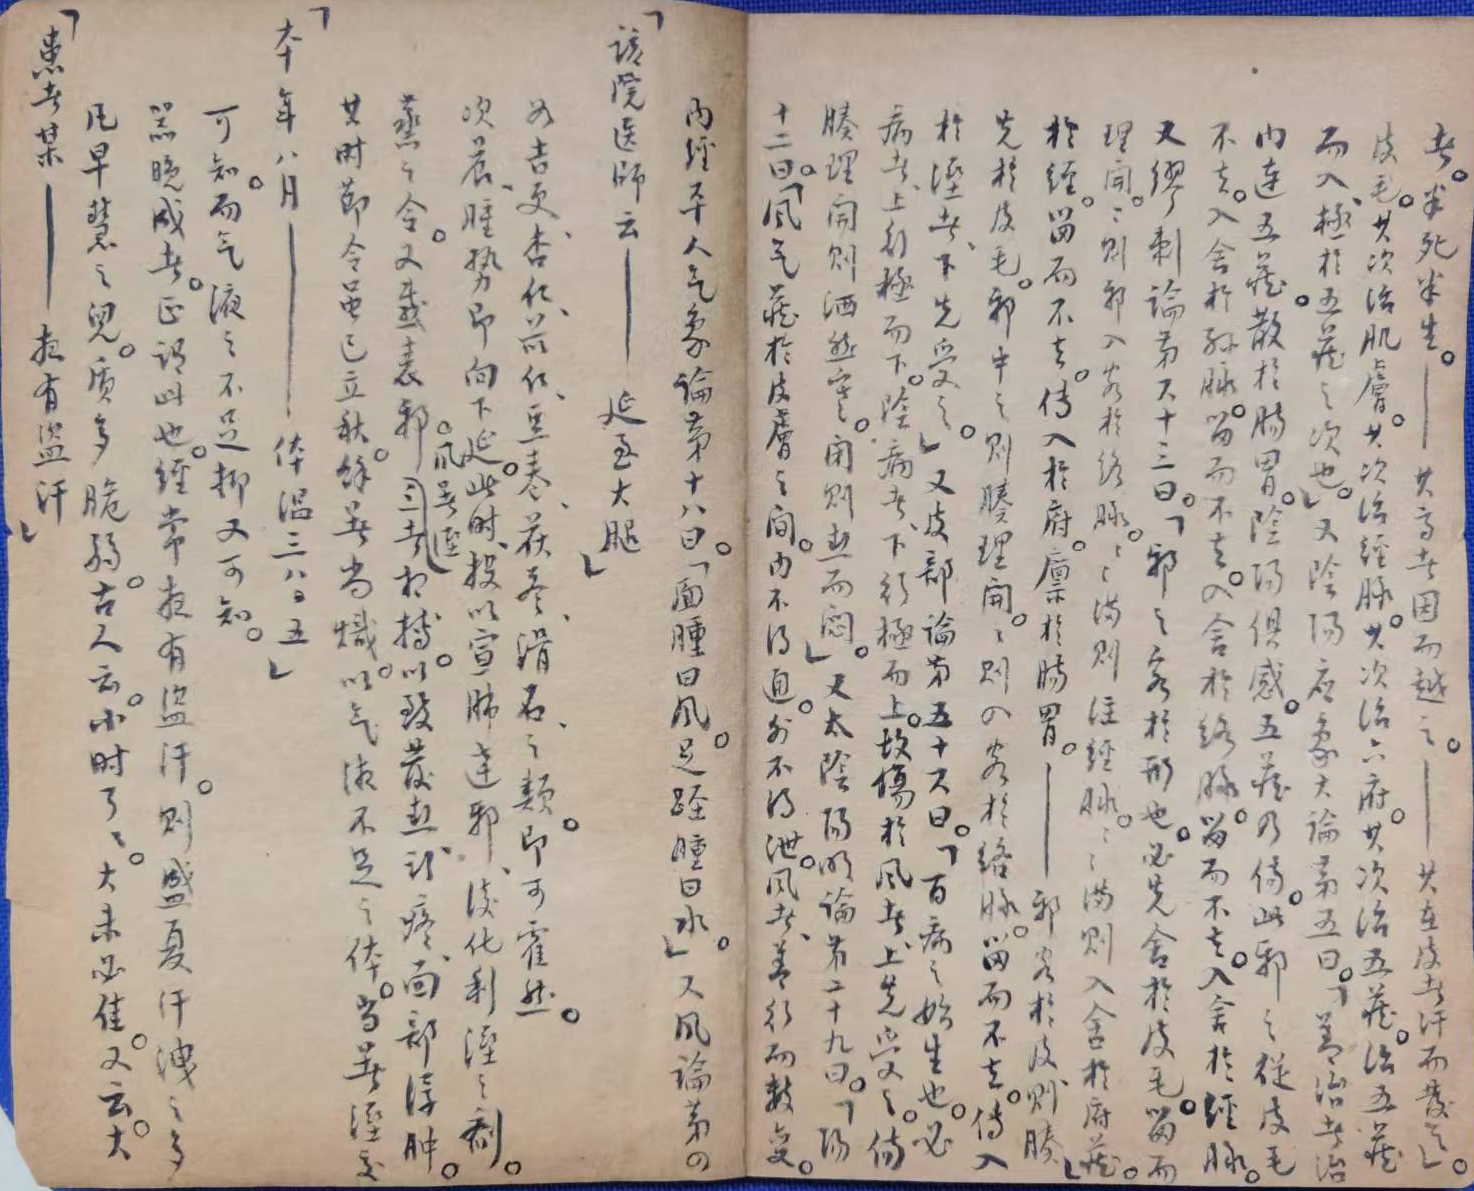 者。半死半生。——其高者因而越之。——其在皮者汗而發之」。
皮毛。其次治肌膚。其次治經脉。其次治六府。其次治五藏。治五藏
而入極於五藏之次也。」又陰陽应象大論第五曰。「善治者治
内連五藏。散於腸胃。陰陽俱感。五藏乃傷。此邪之從皮毛
不去。入舍於孙脉。留而不去。入舍於絡脉。留而不去。入舍於經脉。
又缪刺論第六十三曰。「邪之客於形也。必先舍於皮毛。留而
理開。〻則邪入客於络脉。〻满則注經脉。〻满則入舍於府藏。」
於經。留而不去。傳入於府。廪於腸胃。——邪客於皮則腠
先於皮毛。邪中之則腠理開。〻則入客於络脉。留而不去。傳入
於溼者、下先受之」。又皮部論第五十六曰。「百病之始生也。必
病者、上行極而下。陰病者、下行極而上。故傷於風者、上先受之。傷
腠理開則洒然寒。闭則热而闷。」又太陰陽明論第二十九曰。「陽
十二曰。「風气藏於皮膚之間。内不得通。外不得泄。風者、善行而數变。
内經平人气象論第十八曰。「面腫曰風。足脛腫曰水。」又風論第四
「該院医師云——延至大腿」
如吉更、杏仁、苡仁、豆卷、茯苓、滑石之類。即可霍然。
次晨、腫势即向下延。此时、投以宣肺達邪、淡化利溼之剂。
蒸之令。又感表邪。風羿溼三者相搏。以致發热、頭疼、面部浮肿。
其时節令虽已立秋。餘羿尚熾。以气液不足之体。当羿溼交
「本年八月——体温三八.五」
可知。而气液之不足抑又可知。
黑晚成者。正谓此也。經常夜有盗汗。則盛夏汗洩之多
凡早慧之兒。质多脆弱。古人云。小时了〻。大未必佳。又云。大
「患者某——夜有盗汗」